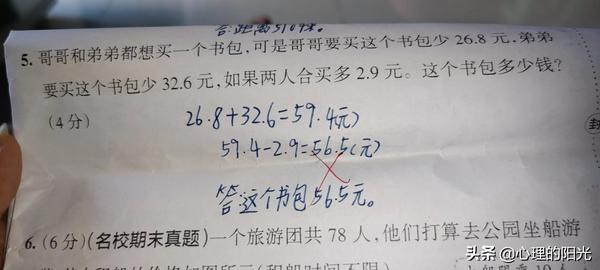 答:距离5109米。
5. 哥哥和弟弟都想买一个书包,可是哥哥要买这个书包少 26.8 元,弟弟
要买这个书包少 32.6 元,如果两人合买多 2.9 元。这个书包多少钱?
(4分)
26.8+32.6=59.4(元)
59.4-2.9=56.5(元)
答:这个书包56.5元。
6. (6分)(名校期末真题)一个旅游团共 78 人,他们打算去公园坐船游
头条 @心理的阳光